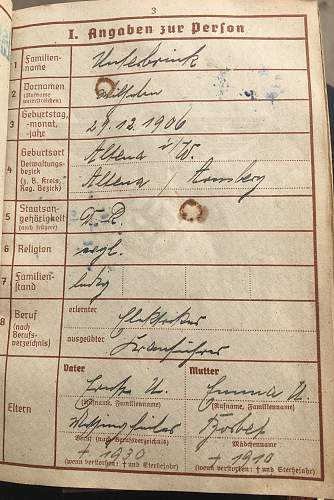 3
I. Angaben zur Person
1 Familien-
name
Unterbrink
2 Vornamen
(Rufname
unterstreichen)
Wilhelm
3 Geburtstag,
-monat,
-jahr
29.12.1906
4 Geburtsort
Verwaltungs-
bezirk
(z. B. Kreis,
Reg. Bezirk)
Altena i/W.
Altena / Arnsberg
5 Staatsan-
gehörigkeit
(auch frühere)
D. R.
6 Religion
evgl.
7 Familien-
stand
ledig
8 Beruf
(nach
Berufs-
verzeichnis)
erlernter
Elektriker
ausgeübter
Kranführer
Eltern
Vater
Mutter
U.
Emma U.
(Rufname, Familienname)
(Rufname, Familienname)
Beruf (nach Berufsverzeichnis)
Mädchenname
† 1930
† 1910
(wenn verstorben: † und Sterbejahr)
(wenn verstorben: † und Sterbejahr)